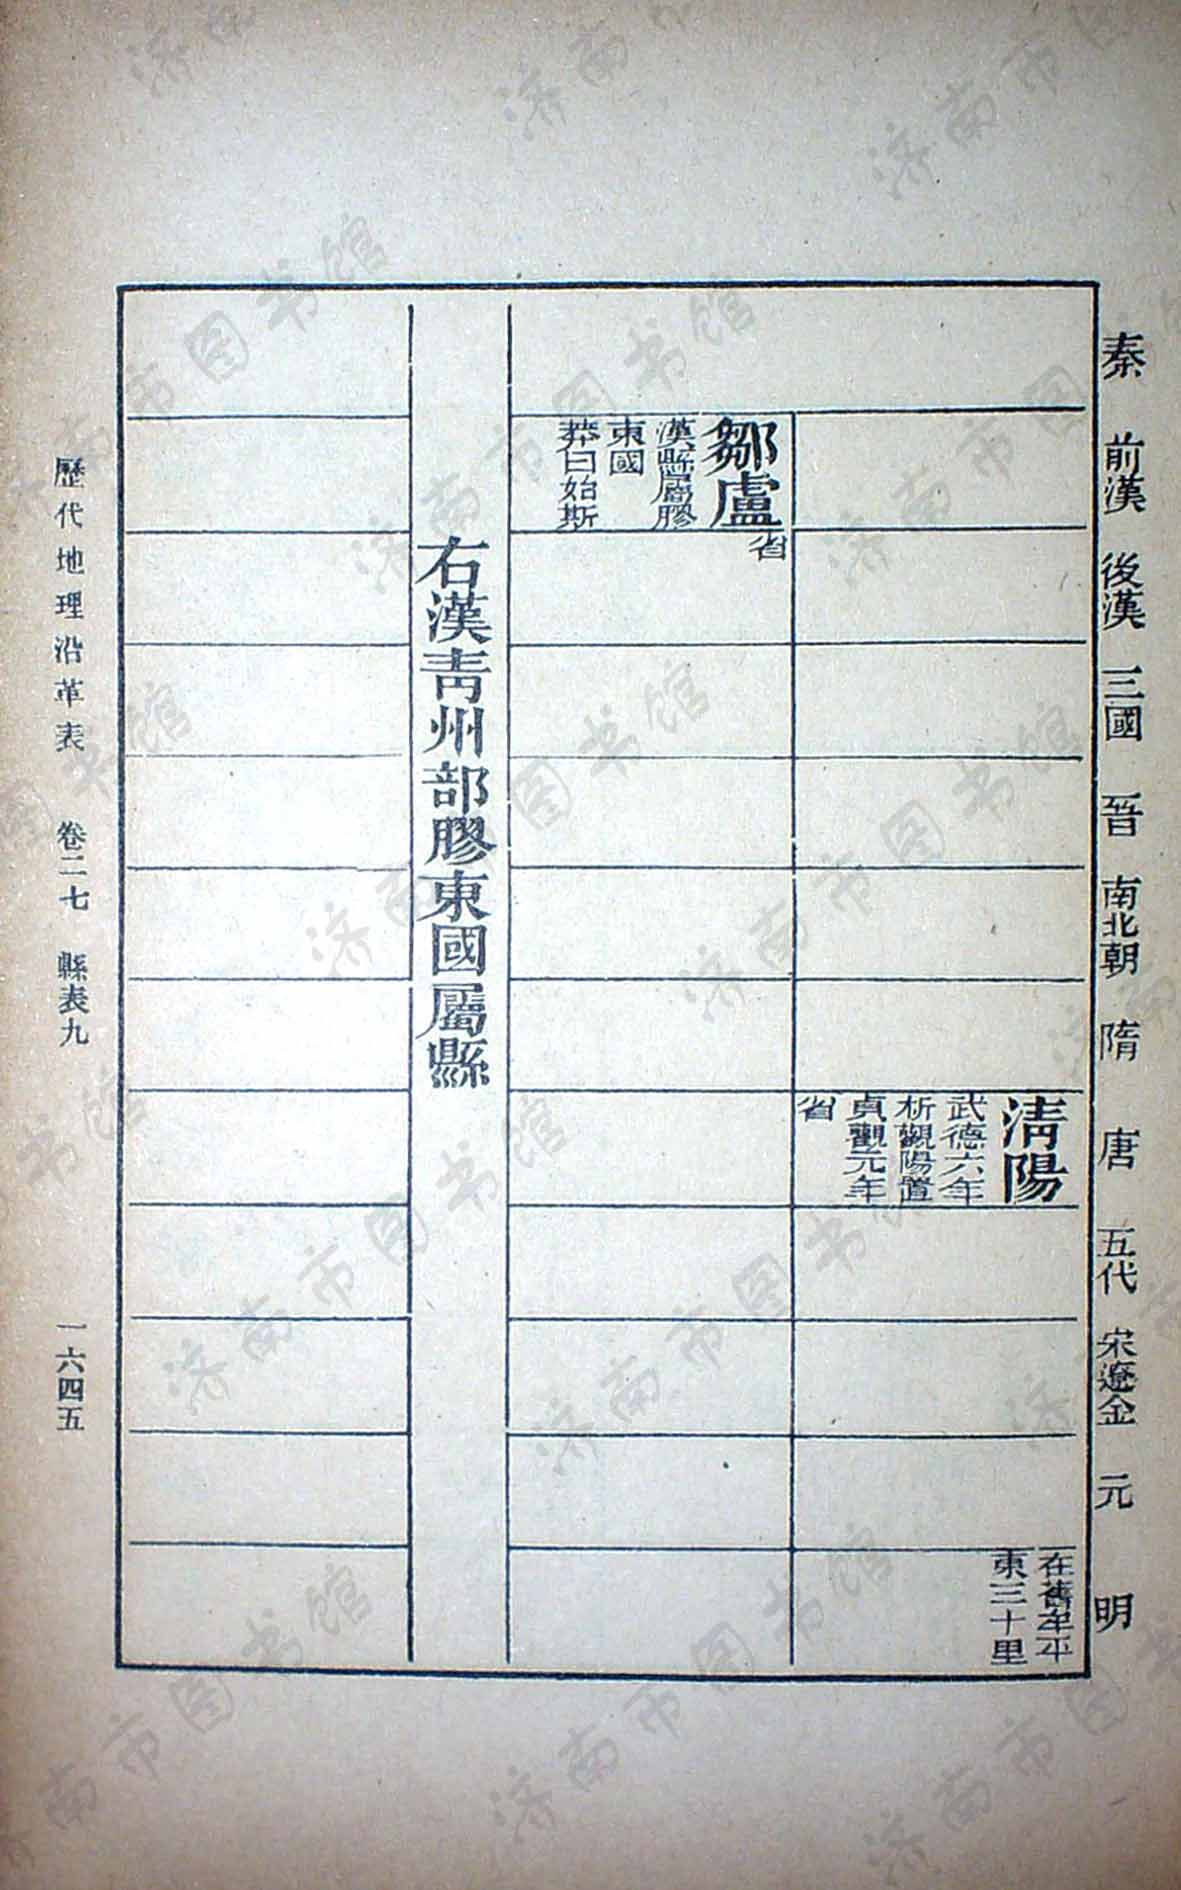 秦　前漢　後漢　三國　晉　南北朝　隋　唐　五代　宋遼金　元　明
清陽
武德六年
析觀陽置
貞觀元年
省
在舊牟平
東三十里
鄒盧
漢縣屬膠
東國
莽曰始斯
省
右漢青州部膠東國屬縣
歷代地理沿革表　卷二七　縣表九　一六四五
济南市图书馆